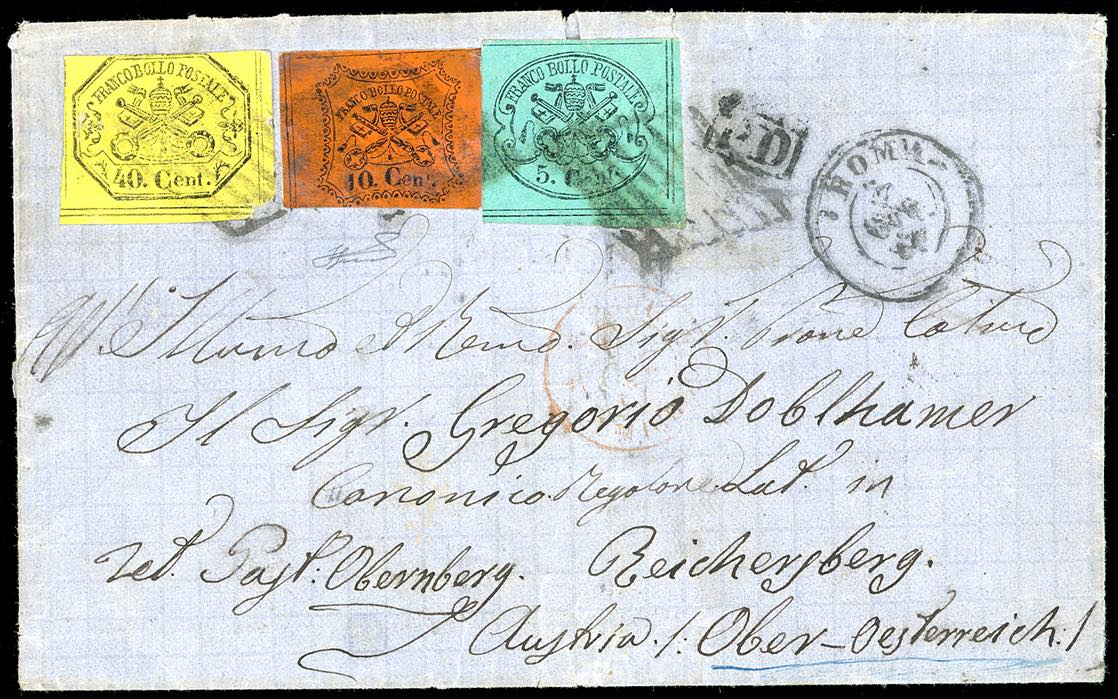 FRANCO BOLLO POSTALE
40. Cent.
FRANCO BOLLO POSTALE
10. Cent.
FRANCO BOLLO POSTALE
5. Cent.
P.D
ROMA
Sigr.
Il Sigr. Gregorio Doblhamer
Canonico Regolare Lat. in
Reichersberg.
let. Post. Obernberg.
Austria /: Ober-Oesterreich :/